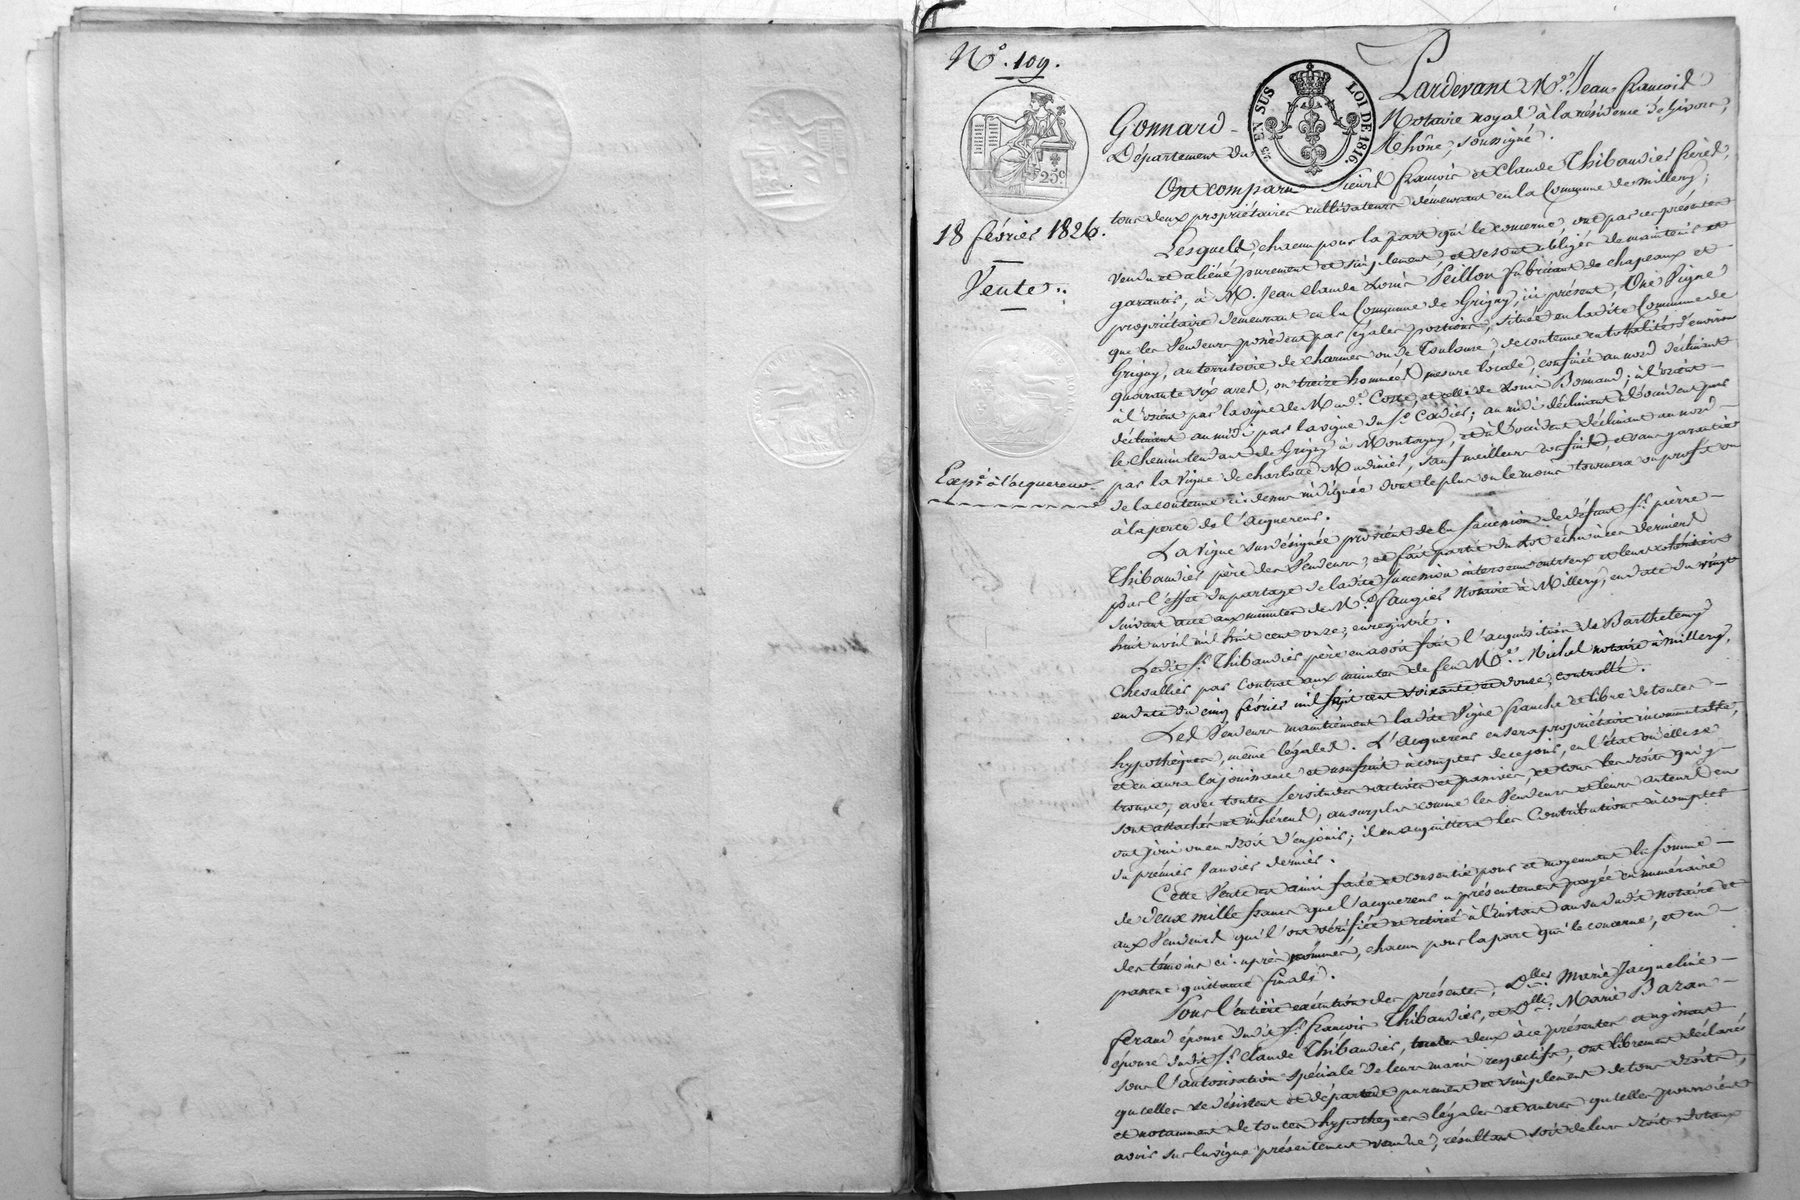 N.° 109.
25.c
EN SUS
LOI DE 1816.
18 février 1826.
Vente
Exp.on à l'acquereur
Pardevant M.e Jean françois
Gonnard Notaire royal à la résidence de Givors,
Département du Rhône, soussigné.
Ont comparu Sieurs françois et Claude Thibaudier frères,
tous deux propriétaires cultivateurs demeurant en la Commune de Millery;
Lesquels, chacun pour la part qui le concerne, ont par ces présentes
vendu et aliéné purement et simplement et se sont obligés de maintenir et
garantir, à M. Jean Claude Louis Peillon fabricant de chapeaux et
propriétaire demeurant en la Commune de Grigny, ici présent, Une Vigne
que les Vendeurs possèdent par égales portions, située en ladite Commune de
Grigny, au territoire de charmes ou de Toulouse, de contenue en totalité d'environ
quarante six ares, ou treize hommées mesure locale, confinée au nord déclinant
à l'orient par la vigne de M. Coste, et celle de Louis Bonnand; à l'orient
déclinant au midi par la vigne du S.r Cadier; au midi déclinant à l'occident par
le chemin tendant de Grigny à Montagny, et à l'occident déclinant au nord
par la vigne de charlotte Mudinier, sauf meilleurs confins, et sans garantie
de la contenue ci-dessus indiquée dont le plus ou le moins tournera au profit ou
à la perte de l'acquereur.
La Vigne susdésignée provient de la succession de défunt S.r pierre
Thibaudier père des Vendeurs, et fait partie du lot échu à ces derniers
pour l'effet du partage de ladite succession intervenu entr'eux et leurs cohéritiers
suivant acte aux minutes de M.e faugier Notaire à Millery, en date du vingt
huit avril mil huit cent onze, enregistré.
Ledit S.r Thibaudier père en avoit fait l'acquisition de Barthelemy
Chevallier par contrat aux minutes de feu M.e Michel notaire à Millery,
en date du cinq février mil sept cent soixante et douze, controllé.
Les Vendeurs maintiennent ladite Vigne franche et libre de toutes
hypothèques, même légales. L'acquereur en sera propriétaire incommutable,
et en aura la jouissance et usufruit à compter de ce jour, en l'état ou elle se
trouve, avec toutes servitudes actives et passives, et tous les droits qui y
sont attachés et inhérens, au surplus comme les Vendeurs et leurs auteurs en
ont joui ou eu droit d'en jouir; il en acquittera les Contributions à compter
du premier Janvier dernier.
Cette Vente est ainsi faite et consentie pour et moyennant la somme
de deux mille francs que l'acquereur a présentement payée en numéraire
aux Vendeurs qui l'ont vérifiée et retirée à l'instant au vu dudit notaire et
des témoins ci-après nommés, chacun pour la part qui le concerne, et en
passent quittance finale.
Pour l'entière exécution des présentes, D.lles Marie Jacqueline
ferand épouse dudit S.r françois Thibaudier, et D.lle Marie Bazan
épouse dudit S.r Claude Thibaudier, toutes deux à ce présentes et agissant
sous l'autorisation spéciale de leurs maris respectifs, ont librement déclaré
qu'elles se désistent et départent purement et simplement de tous droits,
et notamment de toutes hypothèques légales et autres qu'elles pourroient
avoir sur la vigne présentement vendue, résultant soit de leurs droits dotaux